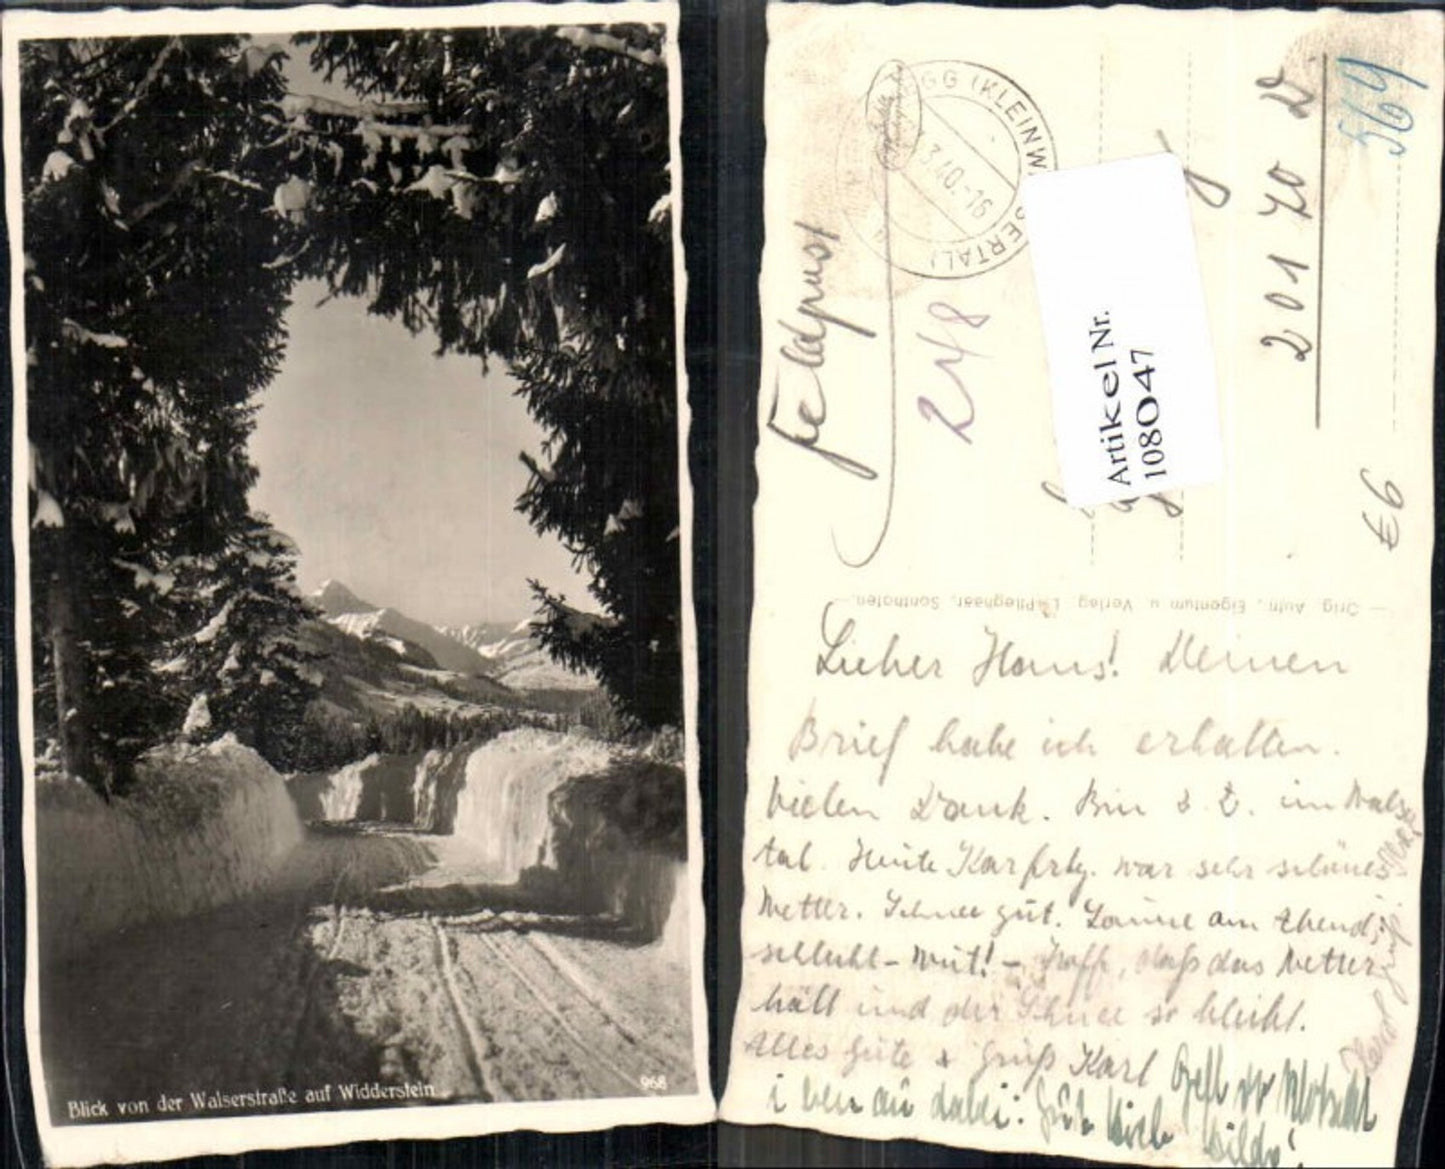 Blick von der Walserstraße auf Widderstein
968
EGG (KLEINWALSERTAL)
3.40.-16
Feldpost
248
Artikel Nr.
108047
20170 D
569
€6
Orig. Aufn., Eigentum u. Verlag: L. Pfleghaar, Sonthofen.
Lieber Hans! Deinen
Brief habe ich erhalten.
Vielen Dank. Bin z. Z. im Walser
tal. Heute Karfrtg. war sehr schönes
Wetter. Schnee gut. Laune am Abend
schlecht - Wut! - Hoff, daß das Wetter
hält und der Schnee so bleibt.
Alles Gute & Gruß Karl
i ben au dabei: